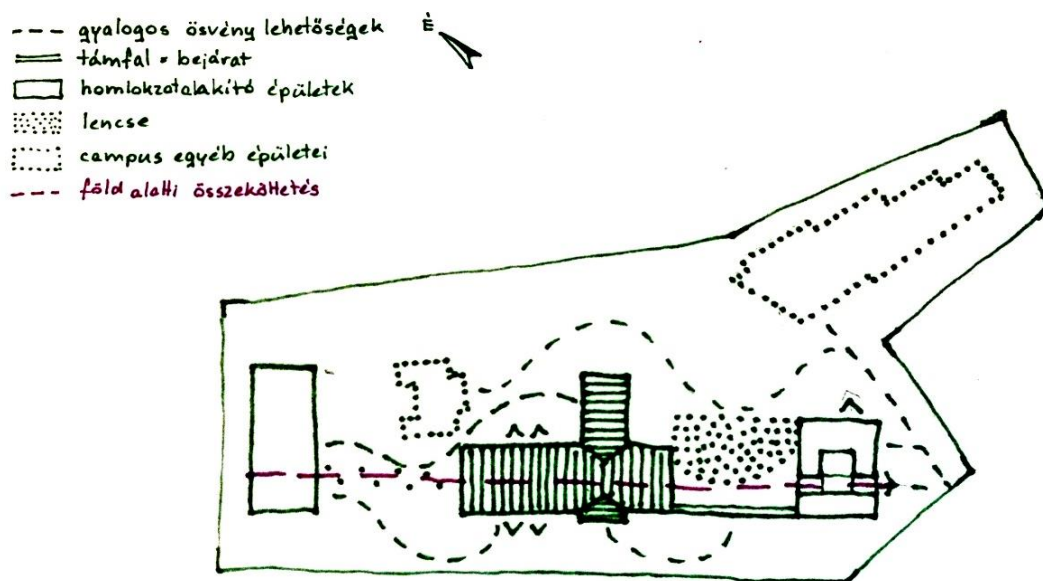 gyalogos ösvény lehetőségek
É
támfal = bejárat
homlokzatalakító épületek
lencse
campus egyéb épületei
föld alatti összeköttetés